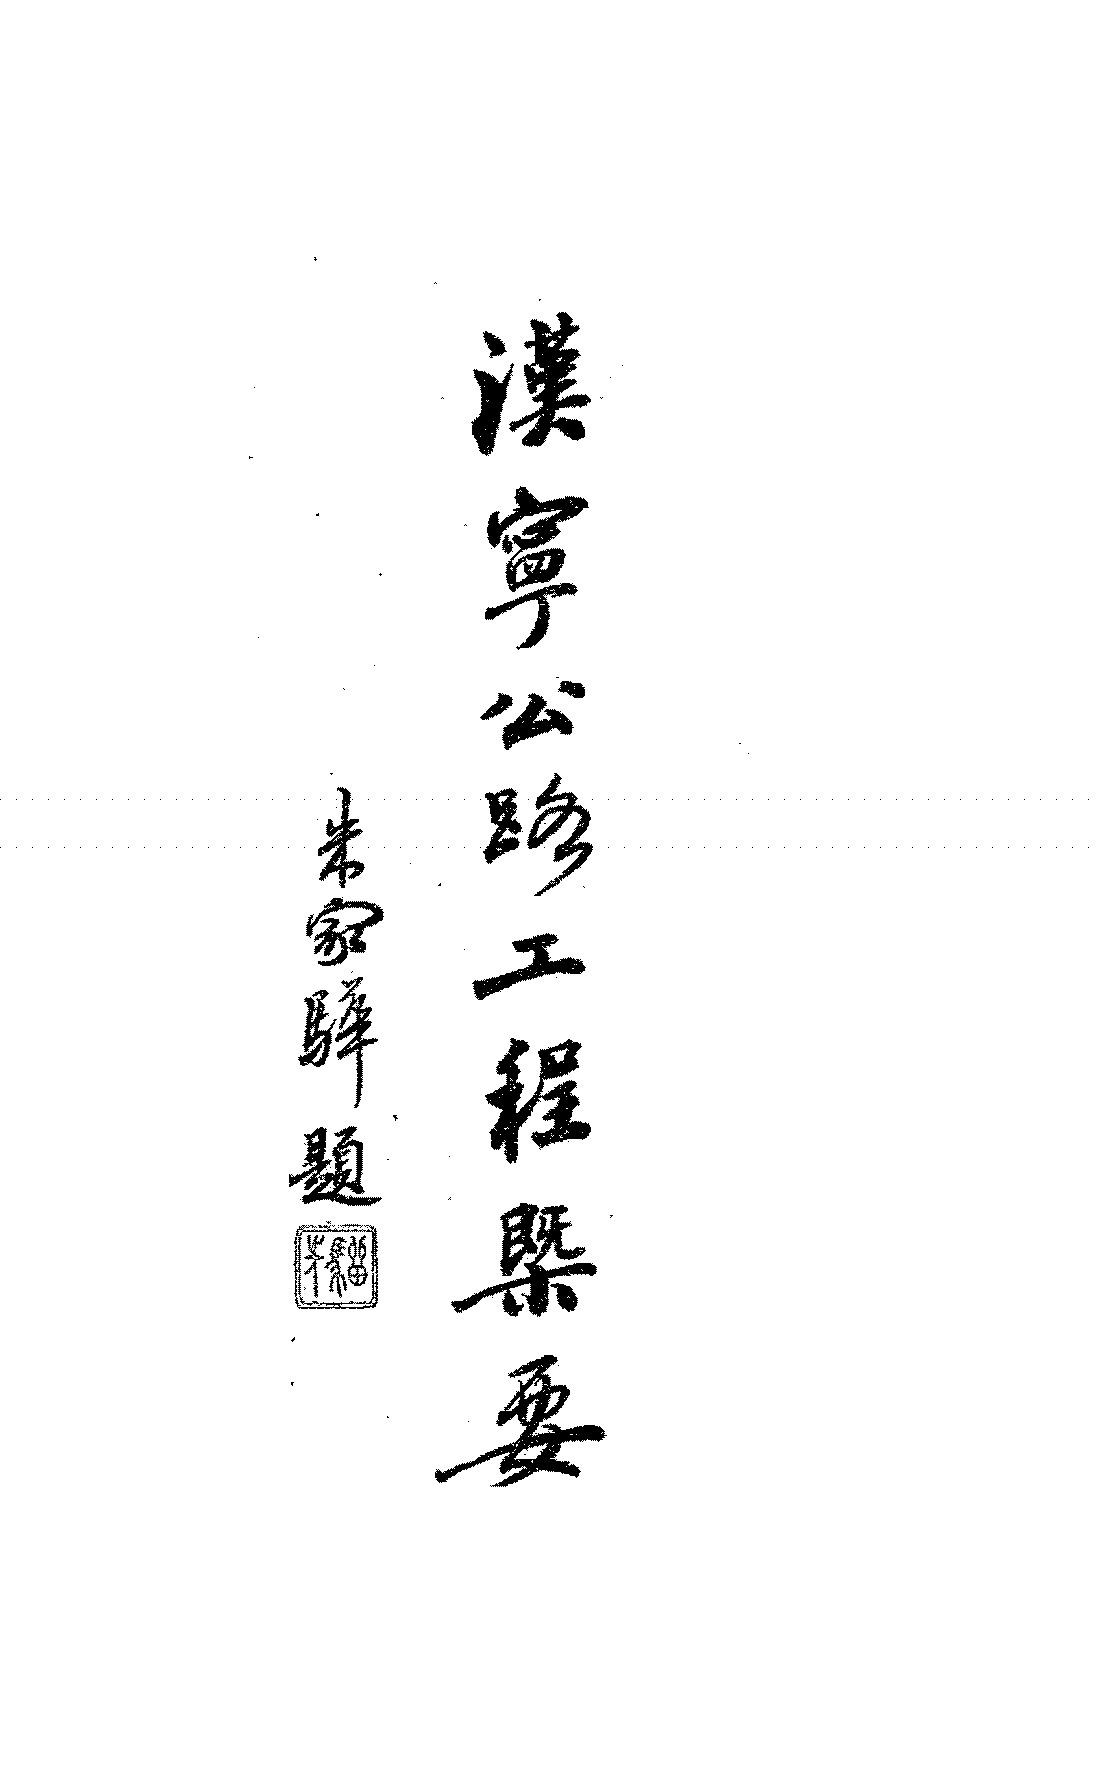 漢寧公路工程槩要
朱家驊題